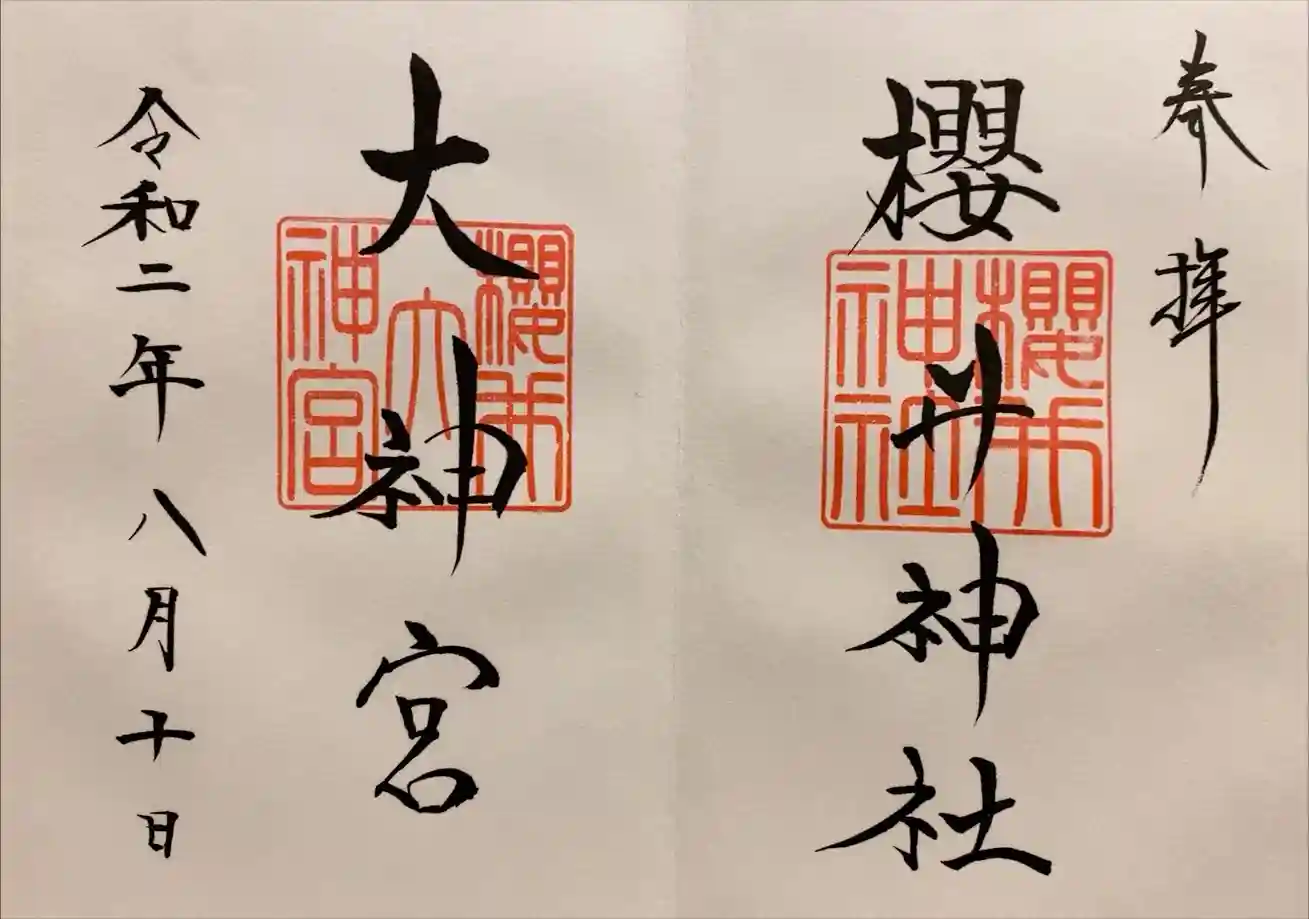 奉拝
櫻井神社
櫻井神社
大神宮
櫻井大神宮
令和二年八月十日